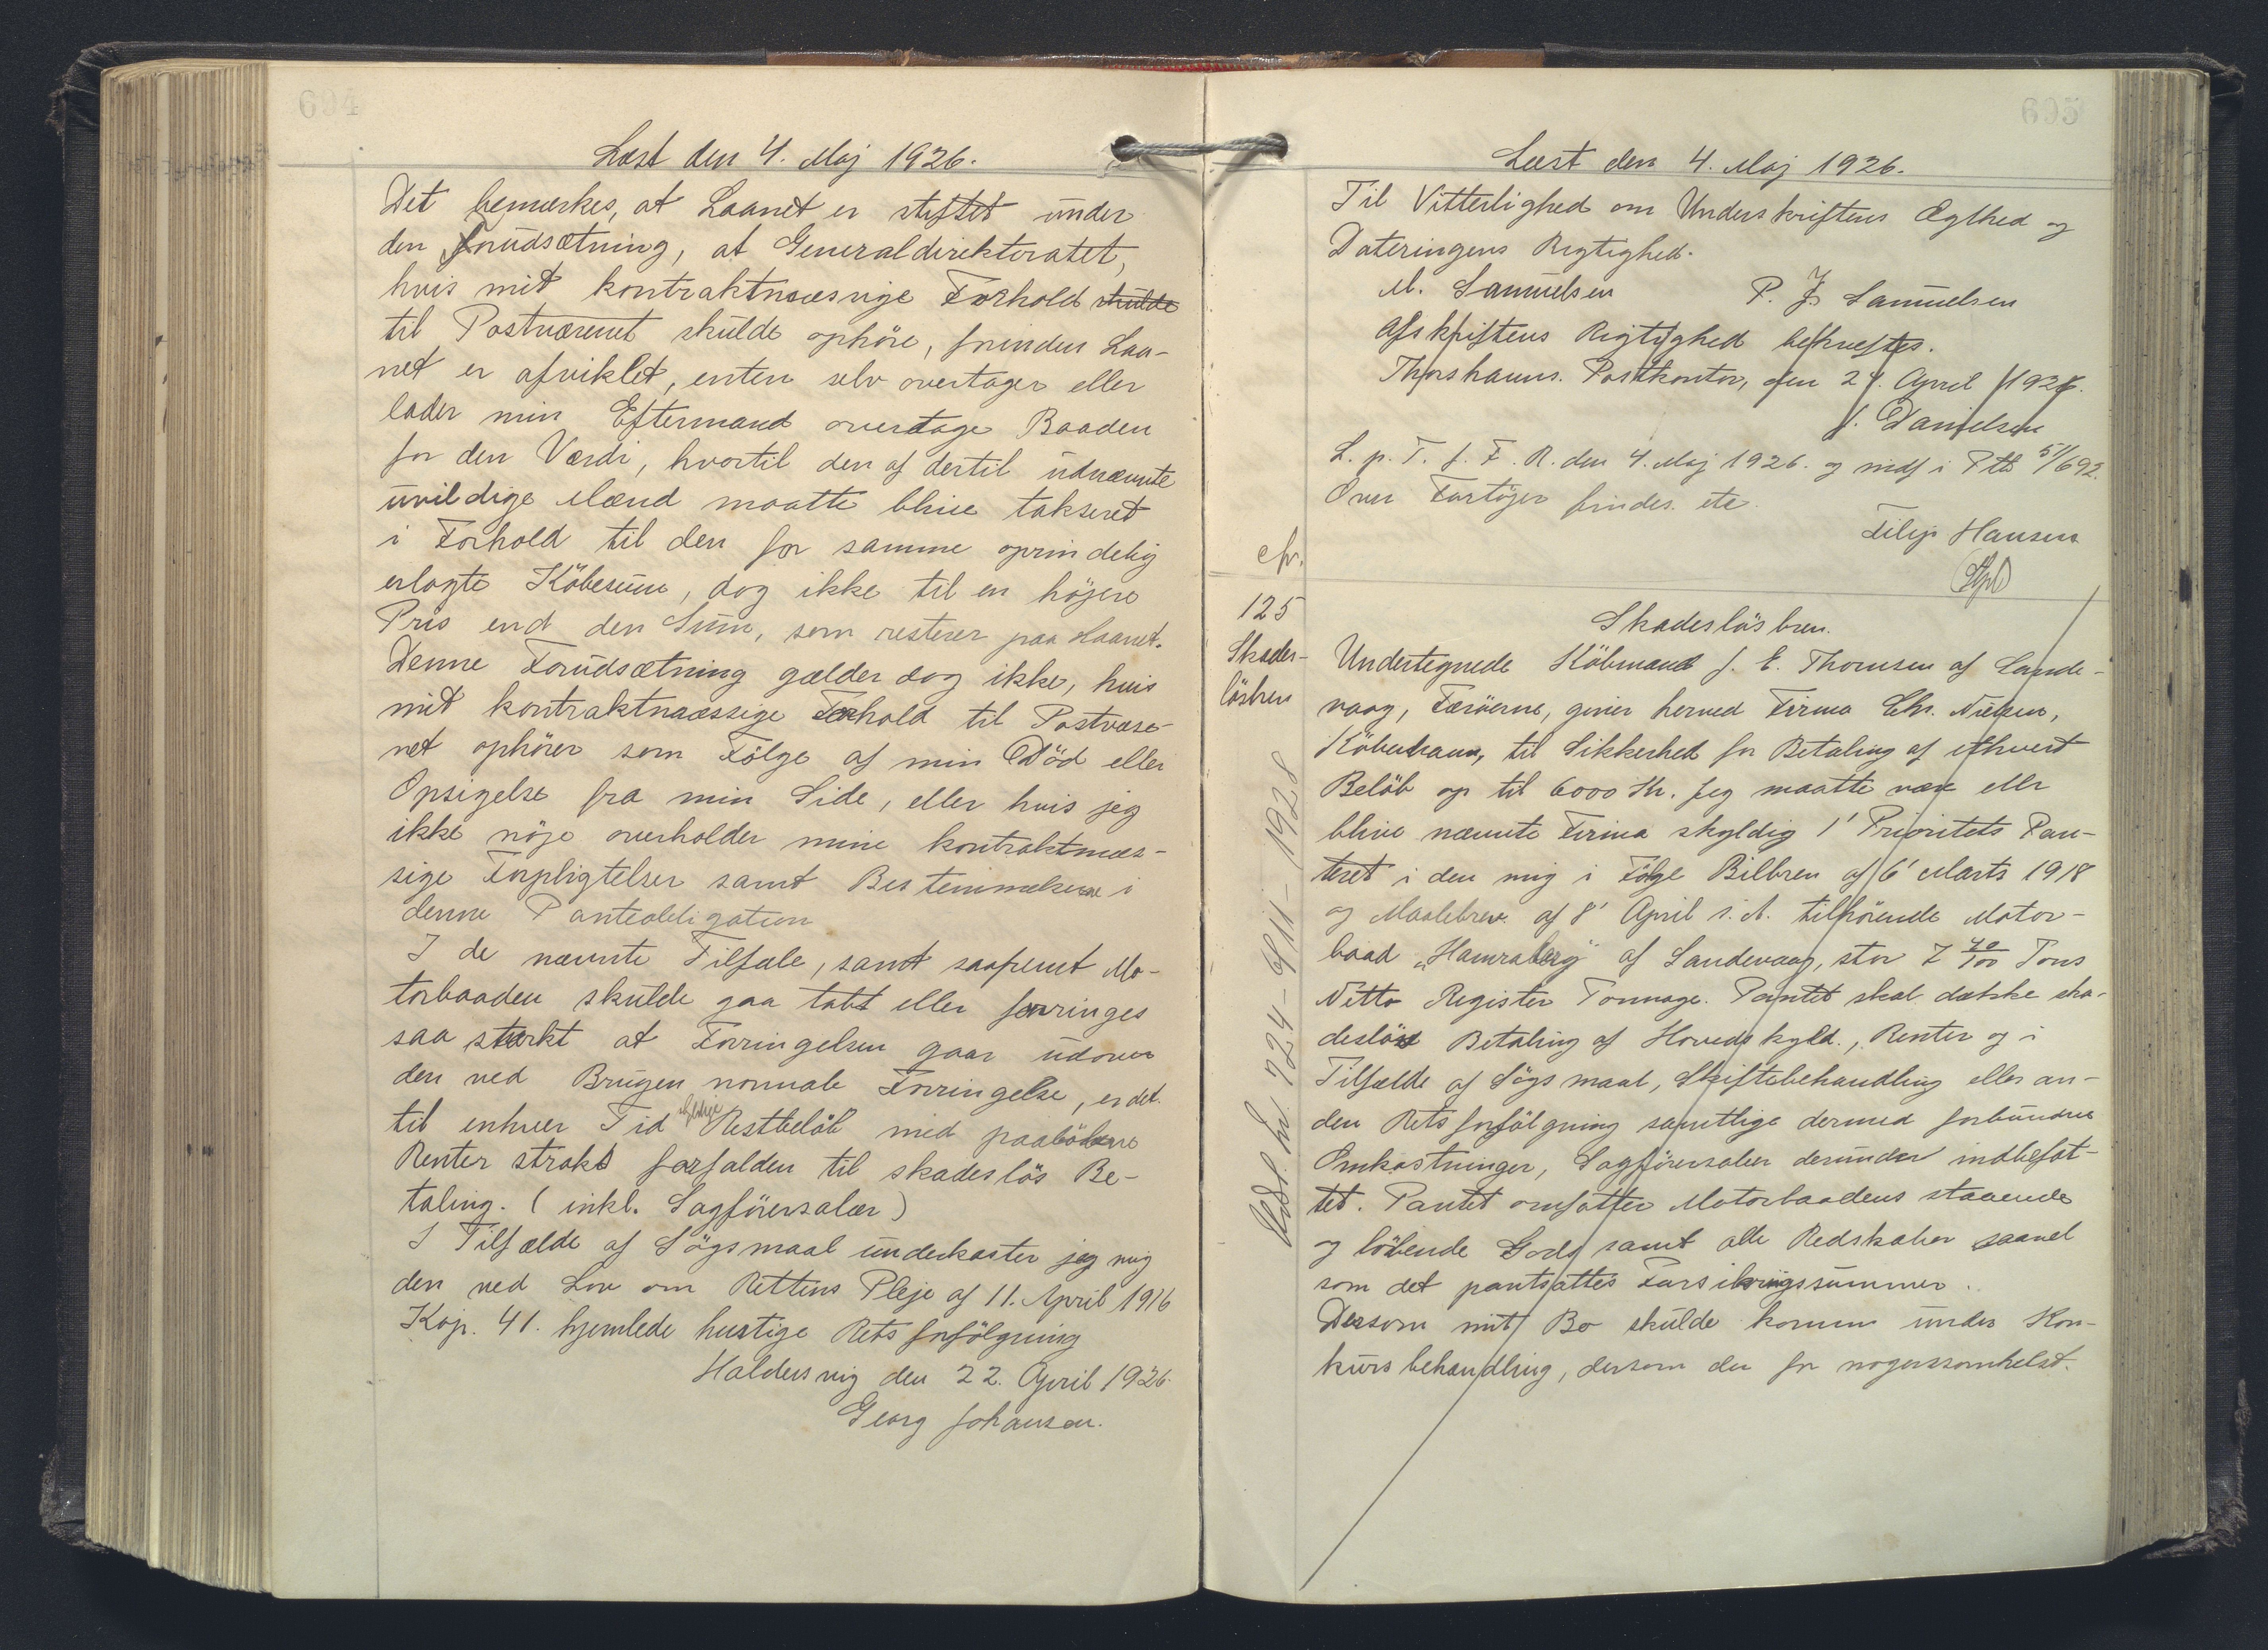 694
Læst den 4. Maj 1926.
Det bemærkes, at Laanet er stiftet under
den Forudsætning, at Generaldirektoratet,
hvis mit kontraktmæssige Forhold skulde
til Postvæsenet skulde ophöre, forinden Laa-
net er afviklet, enten selv overtager eller
lader min Eftermand overtage Baaden
for den Værdi, hvortil den af dertil udnævnte
uvildige Mænd maatte blive takseret
i Forhold til den for samme oprindelig
erlagte Köbesum, dog ikke til en höjere
Pris end den Sum, som resterer paa Laanet.
Denne Forudsætning gælder dog ikke, hvis
mit kontraktmæssige Forhold til Postvæse-
net ophörer som Fölge af min Död eller
Opsigelse fra min Side, eller hvis jeg
ikke nöje overholder mine kontraktmæs-
sige Forpligtelser samt Bestemmelserne i
denne Panteobligation
I de nævnte Tilfæle, samt saafremt Mo-
torbaaden skulde gaa tabt eller forringes
saa stærkt at Forringelsen gaar udover
den ved Brugen normale Forringelse, er det
til enhver Tid skyldige Restbelöb med paaløbne
Renter straks forfalden til skadeslös Be-
taling. (inkl. Sagförersalær)
I Tilfælde af Sögsmaal underkaster jeg mig
den ved Lov om Rettens Pleje af 11. April 1916
Kap. 41. hjemlede hurtige Retsforfölgning
Haldersvig den 22. April 1926.
Georg Johansen.
695
Læst den 4. Maj 1926.
Til Vitterlighed om Underskriftens Ægthed og
Dateringens Rigtighed.
M. Samuelsen P. J. Samuelsen
Afskriftens Rigtighed bekræftes.
Thorshavns. Postkontor, den 27. April 1926.
J. Danielsen
L. p. T. f. F. R. den 4. Maj 1926. og indf i Ptb 51/692.
Over Fartöjer findes. etc.
Filip Hansen
Nr.
125
Skades-
lösbrev
Skadeslösbrev.
Undertegnede Köbmand J. E. Thomsen af Sande-
vaag, Færöerne, giver herved Firma Chr. Nielsen,
Köbenhavn, til Sikkerhed for Betaling af ethvert
Belöb op til 6000 Kr. jeg maatte være eller
blive nævnte Firma skyldig 1' Prioritets Pan-
teret i den mig i Fölge Bilbrev af 6' Marts 1918
og Maalebrev. af 8' April s. A. tilhörende Motor-
baad "Hamraberg" af Sandevaag, stor 7 40/100 Tons
Netto Register Tonnage. Pantet skal dække ska-
deslös Betaling af Hovedskyld., Renter og i
Tilfælde af Sögsmaal, Skiftebehandling eller an-
den Retsforfölgning samtlige dermed forbundne
Omkostninger, Sagförersalær derunder indbefat-
tet. Pantet omfatter Motorbaadens staaende
og löbende Gods samt alle Redskaber saavel
som det pantsattes Forsikringssummer.
Dersom mit Bo skulde komme under Kon-
kursbehandling, dersom der for nogensomhelst.